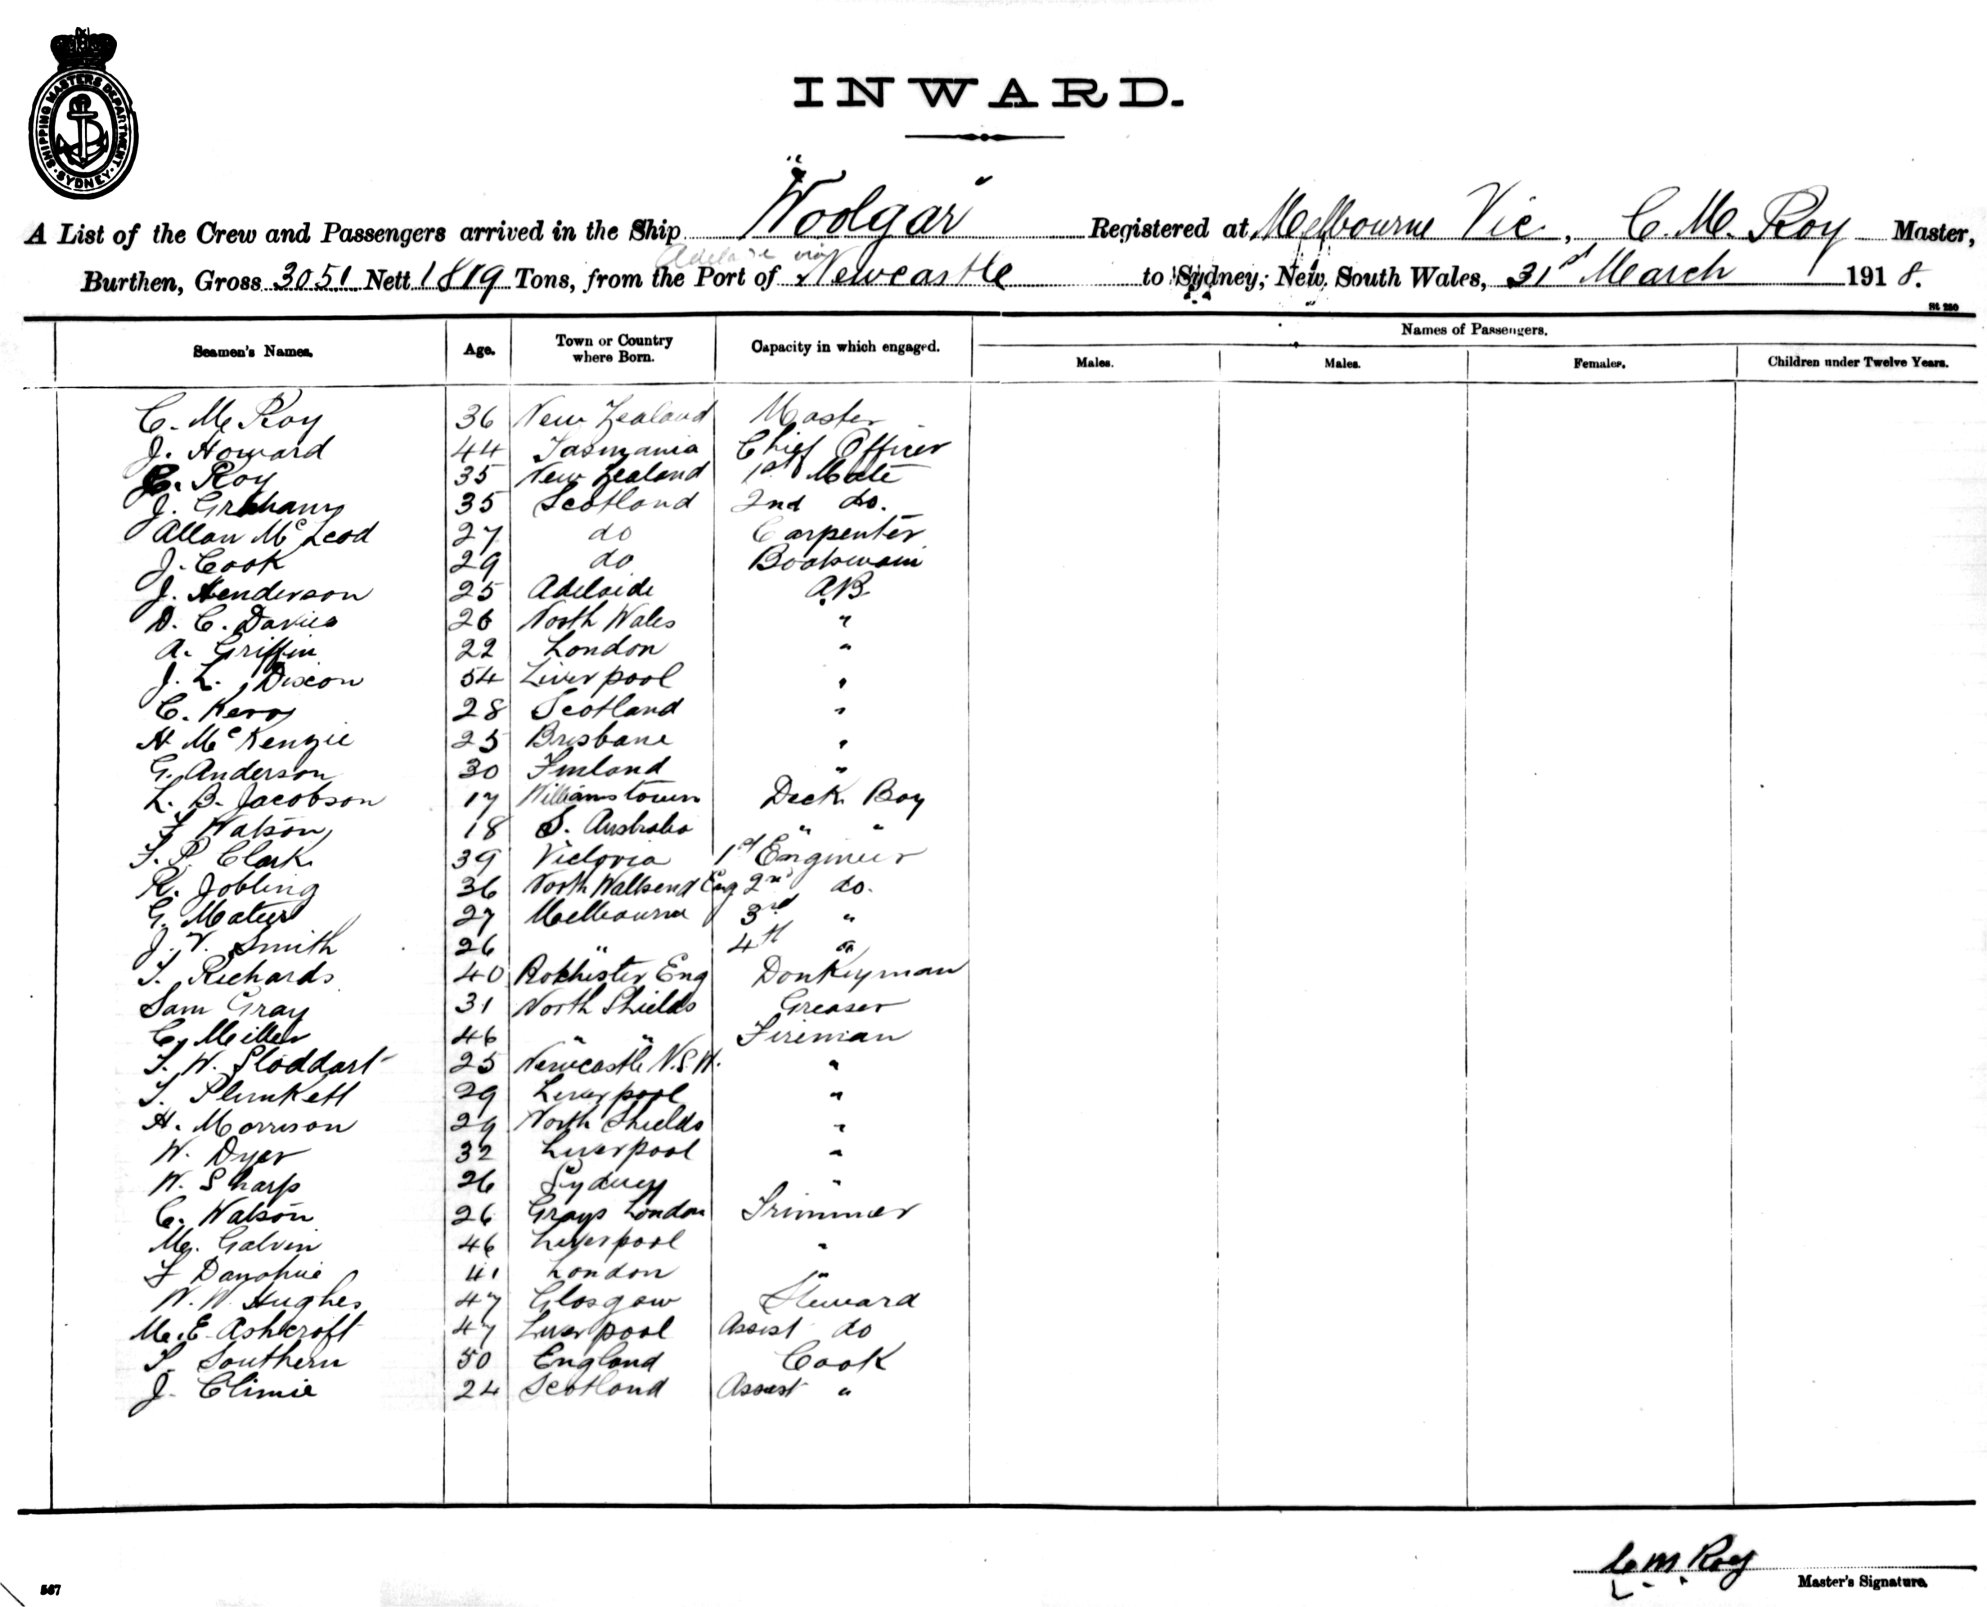 SHIPPING MASTERS DEPARTMENT
SYDNEY
INWARD.
A List of the Crew and Passengers arrived in the Ship "Woolgar" Registered at Melbourne Vic, C. M. Roy Master,
Adelaide via
Burthen, Gross 3051 Nett 1819 Tons, from the Port of Newcastle to Sydney, New South Wales, 31st March 1918.
St 280
Seamen's Names. Age. Town or Country where Born. Capacity in which engaged. Names of Passengers.
Males. Males. Females. Children under Twelve Years.
C. M. Roy 36 New Zealand Master
J. Howard 44 Tasmania Chief Officer
C. Roy 35 New Zealand 1st Mate
J. Graham 35 Scotland 2nd do.
Allan McLeod 27 do Carpenter
J. Cook 29 do Boatswain
J. Henderson 25 Adelaide A.B.
D. C. Davies 26 North Wales "
A. Griffin 22 London "
J. L. Dixon 54 Liverpool "
C. Kerr 28 Scotland "
H McKenzie 25 Brisbane "
G. Anderson 30 Finland "
L. B. Jacobson 17 Williamstown Deck Boy
F Watson 18 S. Australia " "
F. P. Clark 39 Victoria 1st Engineer
R. Jobling 36 North Wallsend Eng 2nd do.
G. Mateer 27 Melbourne 3rd "
J. V. Smith 26 " 4th "
T. Richards 40 Rochister Eng Donkeyman
Sam Gray 31 North Shields Greaser
C. Miller 46 " " Fireman
T. W. Stoddart 25 Newcastle N.S.W. "
T. Plunkett 29 Liverpool "
H. Morrison 29 North Shields "
W. Dyer 32 Liverpool "
W. Sharp 26 Sydney "
C. Watson 26 Grays London Trimmer
M. Galvin 46 Liverpool "
F Danohue 41 London "
W. W. Hughes 47 Glasgow Steward
M. E. Ashcroft 47 Liverpool Assist do
T. Southern 50 England Cook
J. Climie 24 Scotland Assist "
C M Roy
Master's Signature.
567